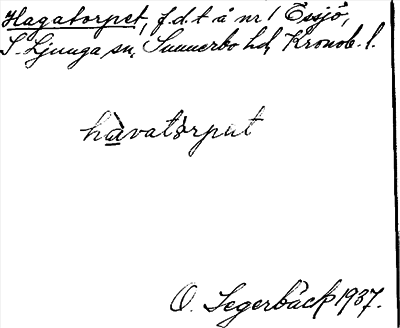 Hagatorpet, f.d.t å nr 1 Össjö,
S. Ljunga sn, Sunnerbo hd, Kronob. l.
hàvatòrput
O. Segerbäck 1937.